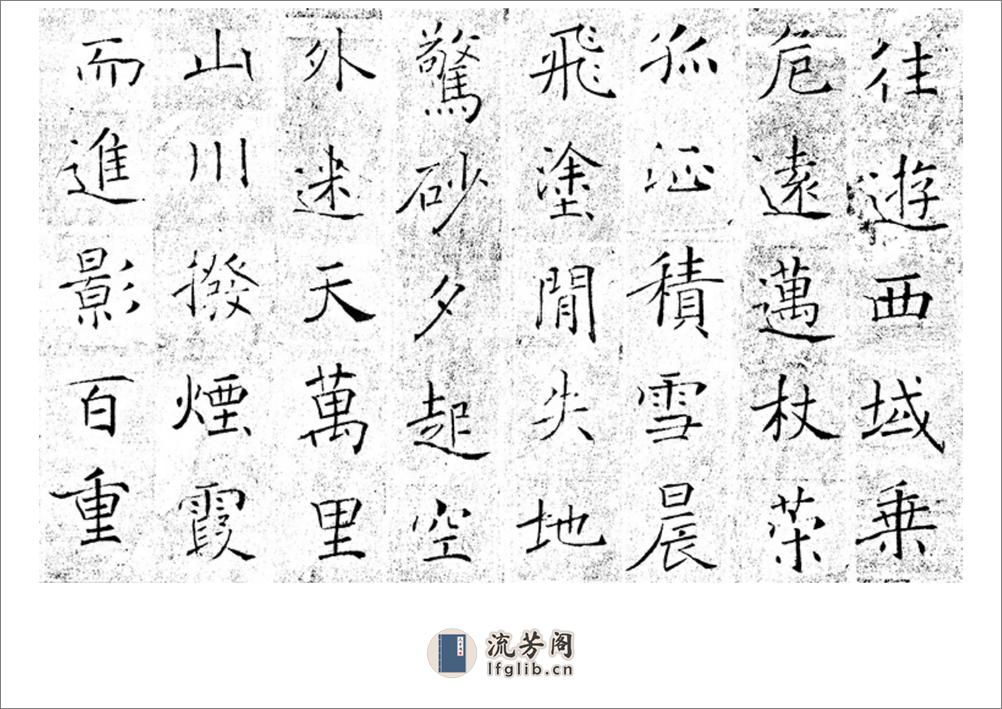 往遊西域乘
危遠邁杖策
孤征積雪晨
飛塗閒失地
驚砂夕起空
外迷天萬里
山川撥煙霞
而進影百重
流芳阁
lfglib.cn